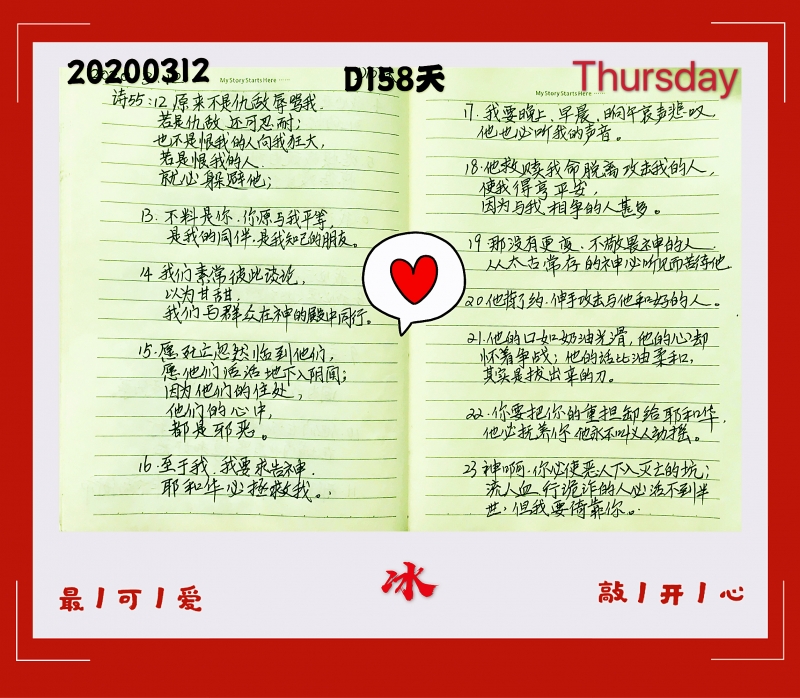 20200312
D158天
Thursday
My Story Starts Here ······
诗55:12 原来不是仇敌辱骂我.
若是仇敌还可忍耐;
也不是恨我的人向我狂大,
若是恨我的人.
就必躲避他;
13. 不料是你.你原与我平等,
是我的同伴.是我知己的朋友。
14 我们素常彼此谈论,
以为甘甜,
我们与群众在神的殿中同行。
15. 愿死亡忽然临到他们,
愿他们活活地下入阴间;
因为他们的住处,
他们的心中,
都是邪恶。
16. 至于我.我要求告神.
耶和华必拯救我。
My Story Starts Here ······
17. 我要晚上、早晨、晌午哀声悲叹.
他也必听我的声音。
18. 他救赎我命脱离攻击我的人,
使我得享平安,
因为与我相争的人甚多。
19 那没有更变、不敬畏神的人.
从太古常存的神必听见而苦待他.
20 他背了约.伸手攻击与他和好的人。
21. 他的口如奶油光滑,他的心却
怀着争战;他的话比油柔和,
其实是拔出来的刀。
22. 你要把你的重担卸给耶和华,
他必抚养你 他永不叫义人动摇。
23 神啊.你必使恶人下入灭亡的坑;
流人血 行诡诈的人必活不到半
世,但我要倚靠你。
最丨可丨爱
冰
敲丨开丨心